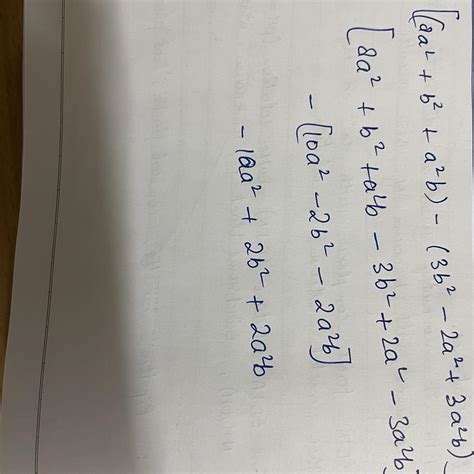 [(8a² + b² + a²b) - (3b² - 2a² + 3a²b)
[8a² + b² + a²b - 3b² + 2a² - 3a²b
- [10a² - 2b² - 2a²b]
- 10a² + 2b² + 2a²b